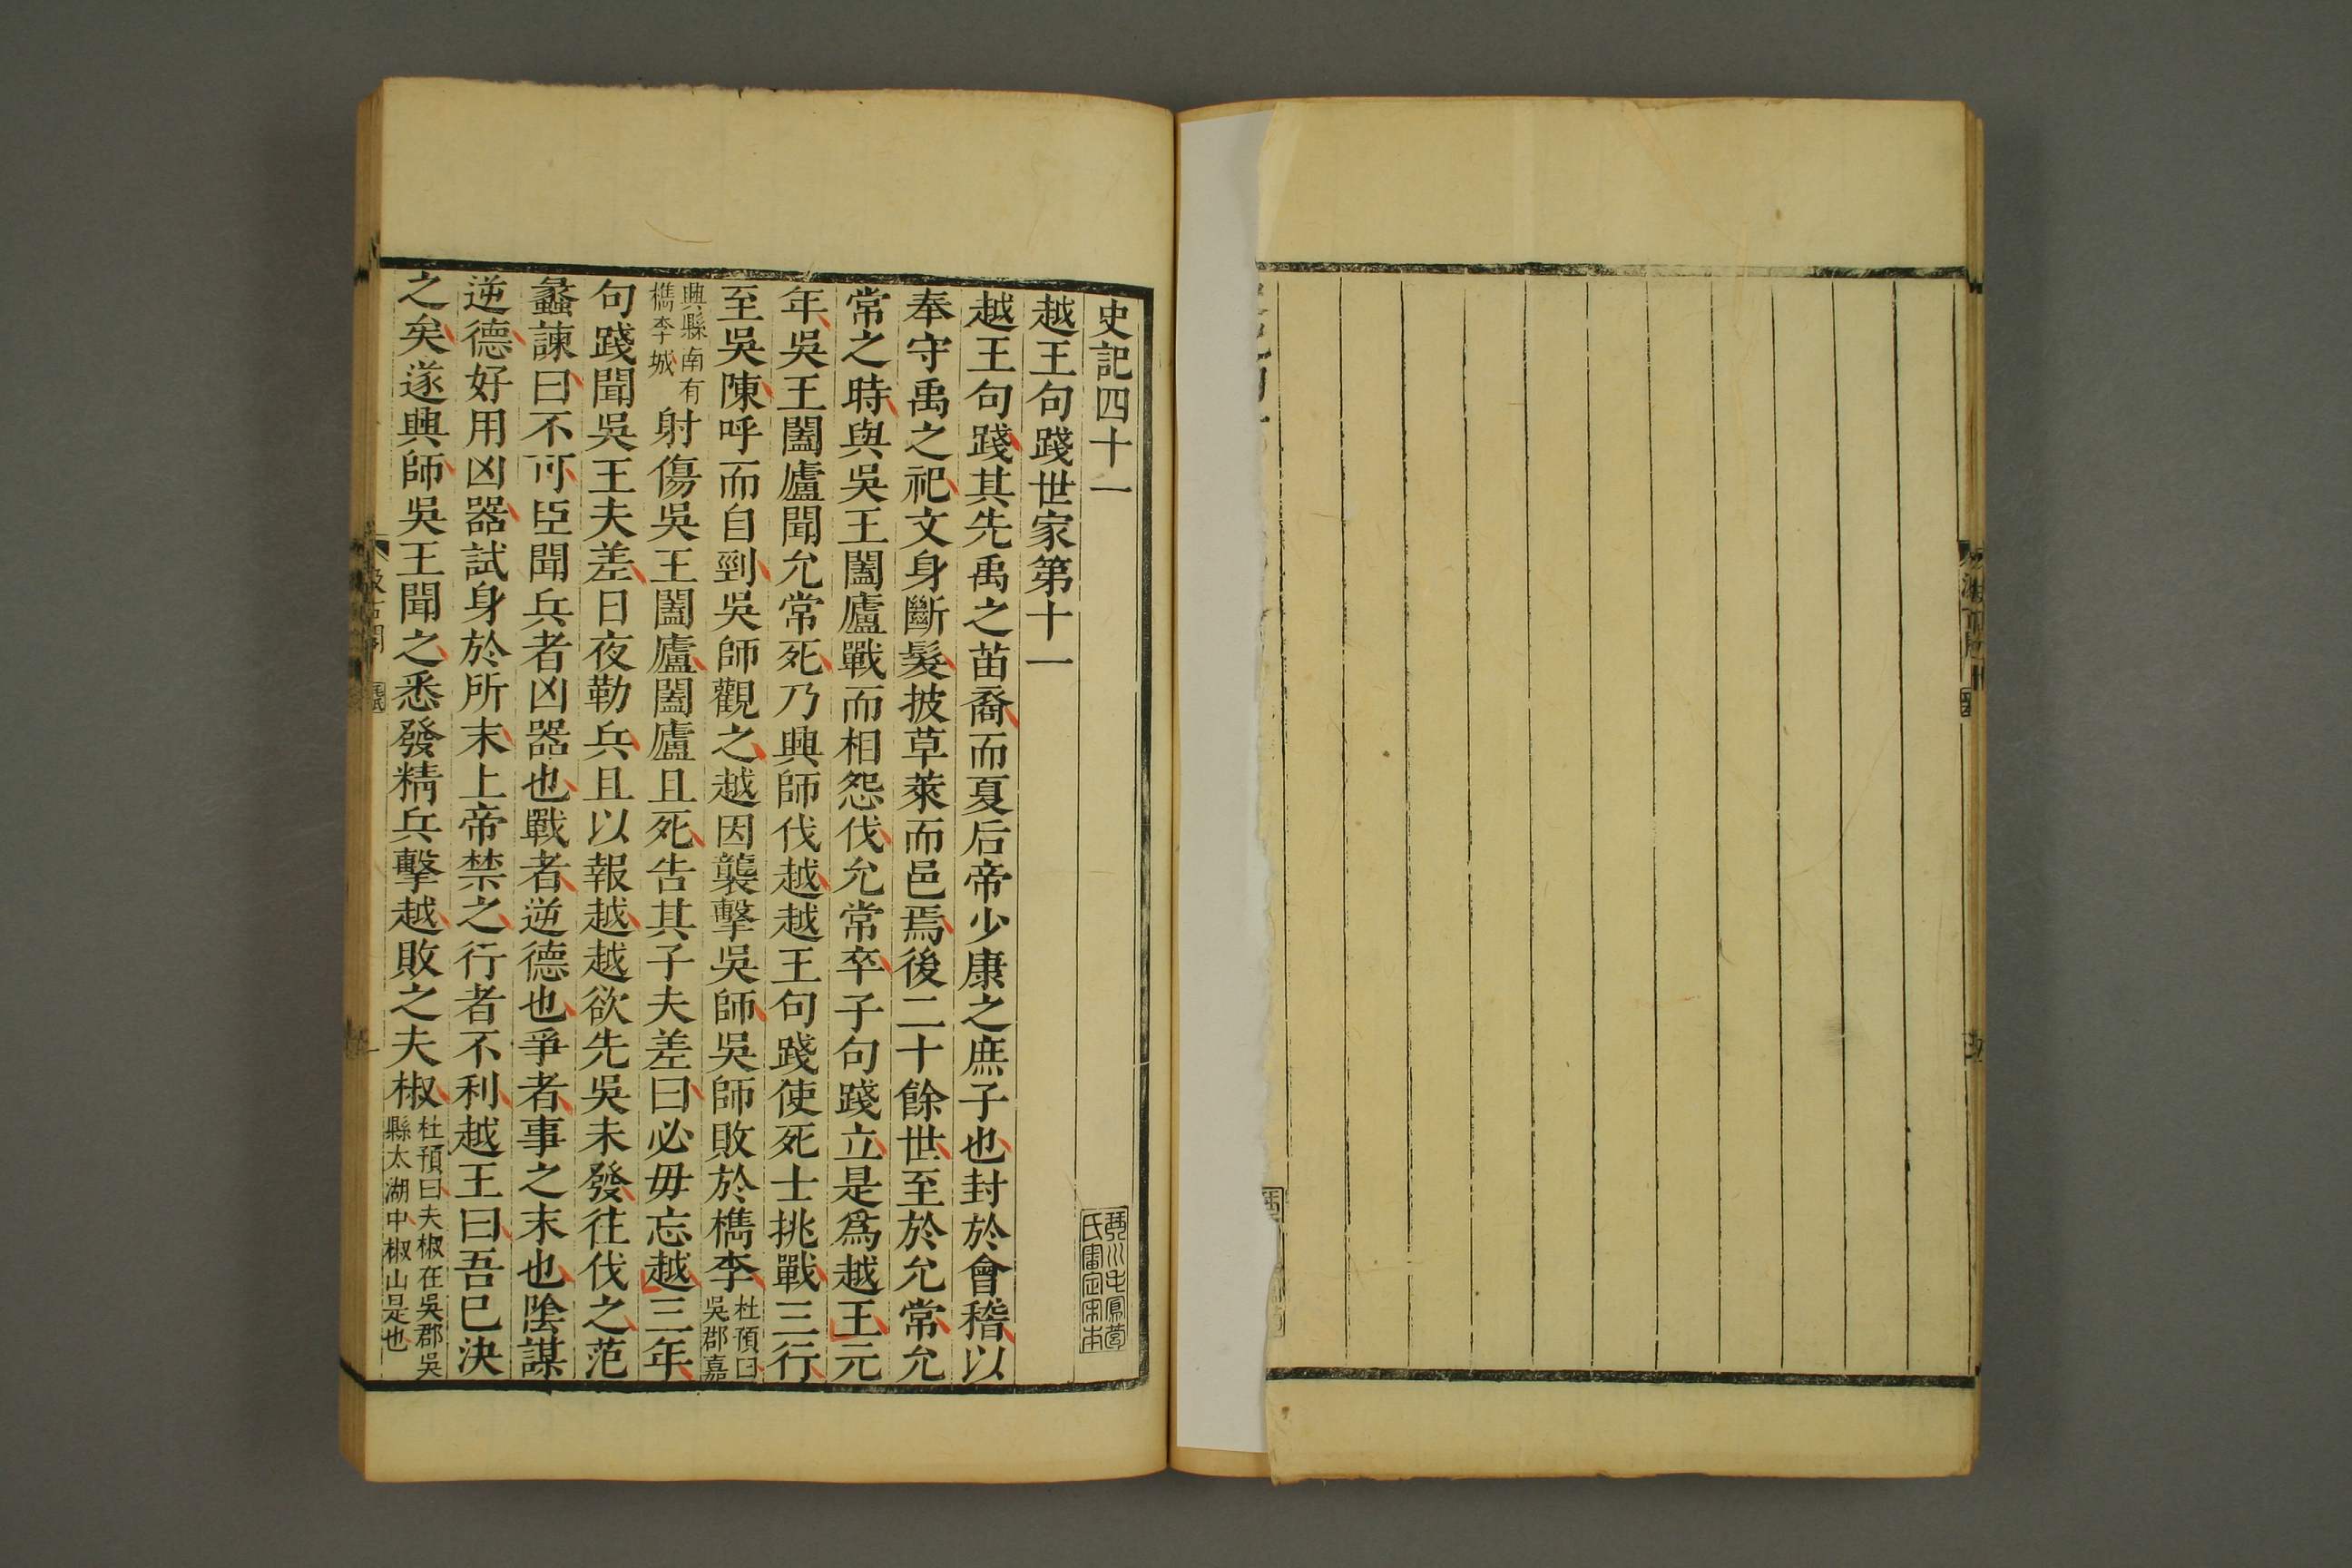 史記四十一
琴川毛鳳苞
氏審定宋本
越王句踐世家第十一
越王句踐其先禹之苗裔而夏后帝少康之庶子也封於會稽以
奉守禹之祀文身斷髮披草萊而邑焉後二十餘世至於允常允
常之時與吳王闔廬戰而相怨伐允常卒子句踐立是爲越王元
年吳王闔廬聞允常死乃興師伐越越王句踐使死士挑戰三行
至吳陳呼而自剄吳師觀之越因襲擊吳師吳師敗於檇李杜預曰吳郡嘉
興縣南有檇李城射傷吳王闔廬闔廬且死告其子夫差曰必毋忘越三年
句踐聞吳王夫差日夜勒兵且以報越越欲先吳未發往伐之范
蠡諫曰不可臣聞兵者凶器也戰者逆德也爭者事之末也陰謀
逆德好用凶器試身於所末上帝禁之行者不利越王曰吾已決
之矣遂興師吳王聞之悉發精兵擊越敗之夫椒杜預曰夫椒在吳郡吳縣太湖中椒山是也